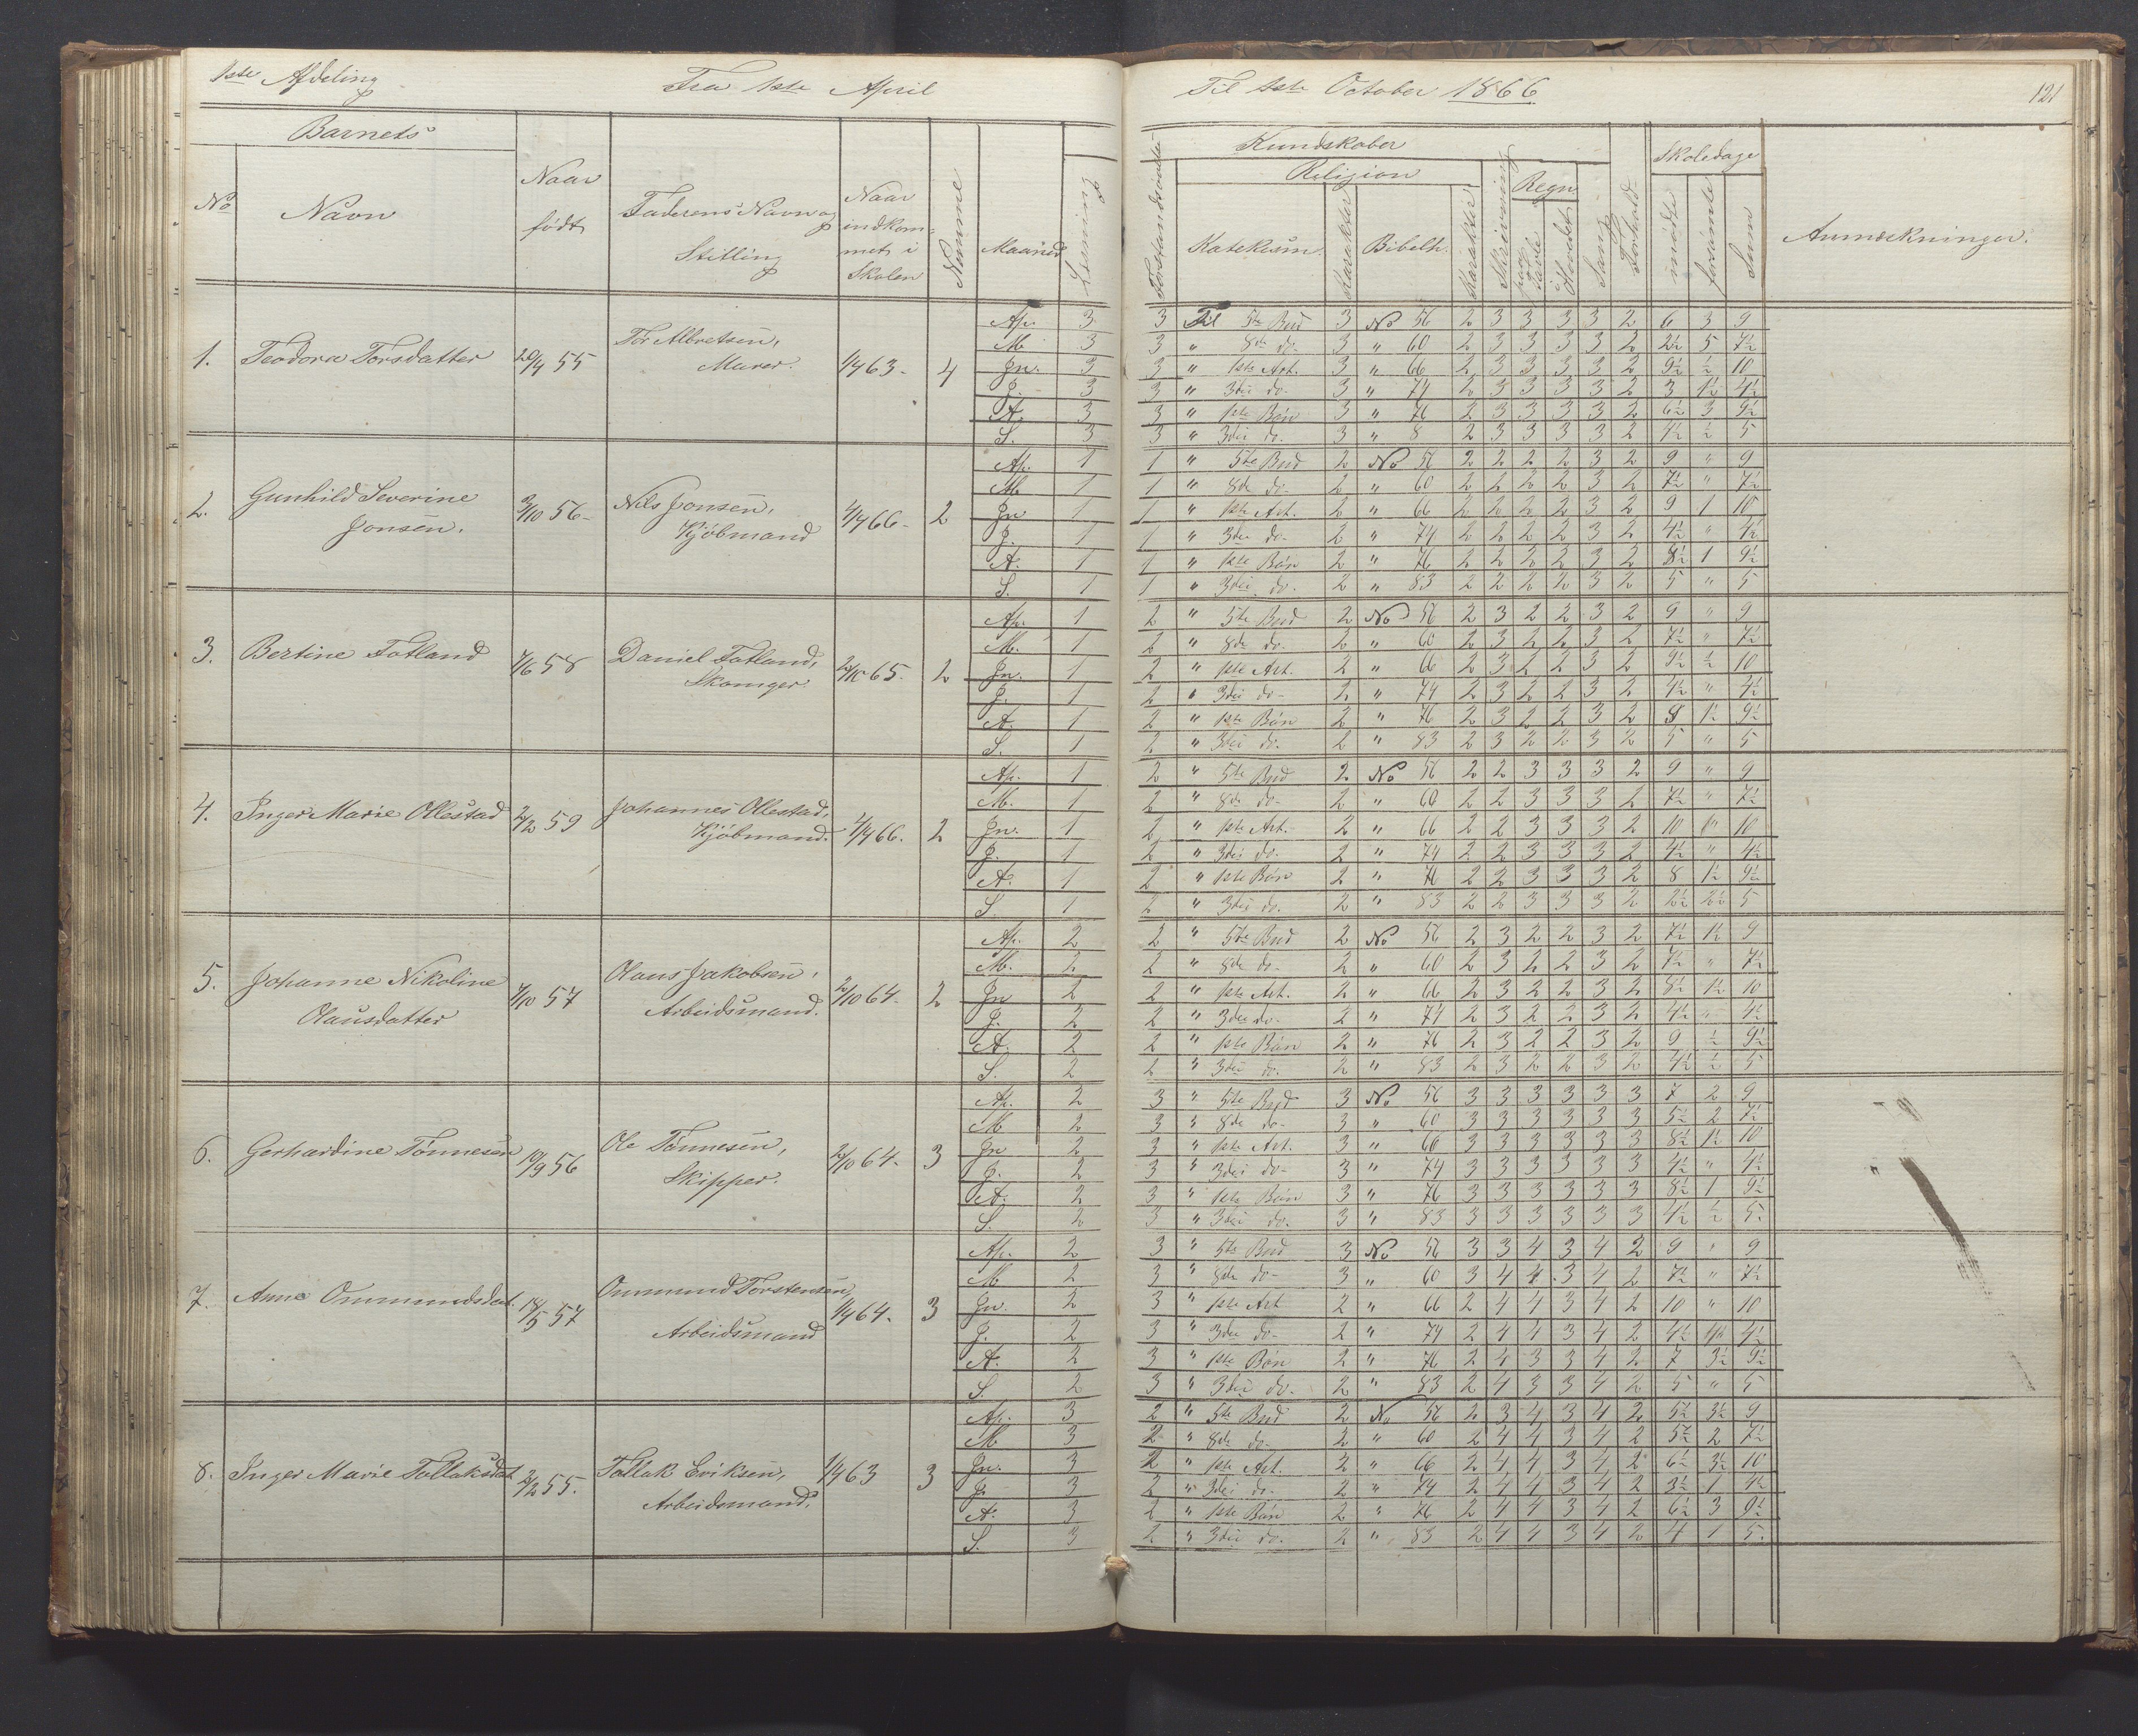 1ste Afdeling
Fra 1ste April
Til 1ste October 1866
121
Barnets
No
Navn
Naar født
Faderens Navn og Stilling
Naar indkommet i Skolen
Numme
Maaned
Læsning
Forstandsøvelse
Kundskaber
Religion
Katekism.
Karakter
Bibelh.
Karakter
Skrivning
Regn
paa Tavle
i Hovedet
Sang
Forhold
Skoledage
mødte
forsømte
Sum
Anmærkninger.
1. Teodora Torsdatter 20/4 55 Tor Albretsen, Murer. 1/4 63- 4
Ap. 3 3 Til 5te Bud 3 No 56 2 3 3 3 3 2 6 3 9
M 3 3 " 8de do- 3 " 60 2 3 3 3 3 2 2½ 5 7½
Jn. 3 3 " 1ste Art. 3 " 66 2 3 3 3 3 2 9½ ½ 10
J. 3 3 " 3die do- 3 " 74 2 3 3 3 3 2 3 1½ 4½
A. 3 3 " 1ste Bøn 3 " 76 2 3 3 3 3 2 6½ 3 9½
S. 3 3 " 3die do. 3 " 8 2 3 3 3 3 2 4½ ½ 5
2. Gunhild Severine Jonsen. 3/10 56- Nils Jonsen, Kjöbmand 4/4 66- 2
Ap. 1 1 " 5te Bud 2 No 56 2 2 2 2 3 2 9 " 9
M 1 1 " 8de do- 2 " 60 2 2 2 2 3 2 7½ " 7½
Jn 1 1 " 1ste Art. 2 " 66 2 2 2 2 3 2 9 1 10
J. 1 1 " 3die do- 2 " 74 2 2 2 2 3 2 4½ " 4½
A. 1 1 " 1ste Bøn 2 " 76 2 2 2 2 3 2 8½ 1 9½
S. 1 1 " 3die do. 2 " 83 2 2 2 2 3 2 5 " 5
3. Bertine Fotland 7/6 58 Daniel Fotland, Skomger. 2/10 65. 2
Ap. 1 2 " 5te Bud 2 No 56 2 3 2 2 3 2 9 " 9
M. 1 2 " 8de do 2 " 60 2 3 2 2 3 2 7½ " 7½
Jn. 1 2 " 1ste Art. 2 " 66 2 3 2 2 3 2 9½ ½ 10
J. 1 2 " 3die do- 2 " 74 2 3 2 2 3 2 4½ " 4½
A. 1 2 " 1ste Bøn 2 " 76 2 3 2 2 3 2 8 1½ 9½
S. 1 2 " 3die do. 2 " 83 2 3 2 2 3 2 5 " 5
4. Inger Marie Ollestad 2/2 59 Johannes Ollestad, Kjöbmand. 4/4 66. 2
Ap. 1 2 " 5te Bud 2 No 56 2 2 3 3 3 2 9 " 9
M. 1 2 " 8de do- 2 " 60 2 2 3 3 3 2 7½ " 7½
Jn. 1 2 " 1ste Art.- 2 " 66 2 2 3 3 3 2 10 " 10
J. 1 2 " 3die do. 2 " 74 2 2 3 3 3 2 4½ " 4½
A. 1 2 " 1ste Bøn 2 " 76 2 2 3 3 3 2 8 1½ 9½
S. 1 2 " 3die do. 2 " 83 2 2 3 3 3 2 2½ 2½ 5
5. Johanne Nikoline Olausdatter 7/10 57 Olaus Jakobsen, Arbeidsmand. 2/10 64- 2
Ap. 2 2 " 5te Bud 2 No 56 2 3 2 2 3 2 7½ 1½ 9
M. 2 2 " 8de do- 2 " 60 2 3 2 2 3 2 7½ " 7½
Jn 2 2 " 1ste Art. 2 " 66 2 3 2 2 3 2 8½ 1½ 10
J. 2 2 " 3die do- 2 " 74 2 3 2 2 3 2 4½ " 4½
A. 2 2 " 1ste Bøn 2 " 76 2 3 2 2 3 2 9 ½ 9½
S. 2 2 " 3die do. 2 " 83 2 3 2 2 3 2 4½ ½ 5
6. Gerhardine Tönnesen 19/9 56 Ole Tönnesen, Skipper. 2/10 64- 3
Ap. 2 3 " 5te Bud 3 No 56 3 3 3 3 3 3 7 2 9
M 2 3 " 8de do- 3 " 60 3 3 3 3 3 3 5½ 2 7½
Jn 2 3 " 1ste Art. 3 " 66 3 3 3 3 3 3 8½ 1½ 10
J. 2 3 " 3die do- 3 " 74 3 3 3 3 3 3 4½ " 4½
A. 2 3 " 1ste Bøn 3 " 76 3 3 3 3 3 3 8½ 1 9½
S. 2 3 " 3die do. 3 " 83 3 3 3 3 3 3 4½ ½ 5.
7. Anne Ommundsdat. 18/5 57 Ommund Torstensen, Arbeidsmand 1/4 64- 3
Ap. 2 3 " 5te Bud 3 No 56 3 3 4 3 4 2 9 " 9
M 2 3 " 8de do- 3 " 60 3 4 4 3 4 2 7½ " 7½
Jn. 2 3 " 1ste Art 2 " 66 2 4 4 3 4 2 10 " 10
J. 2 3 " 3die do- 2 " 74 2 4 4 3 4 2 4½ " 4½
A. 2 3 " 1ste Bøn 2 " 76 2 4 3 3 4 2 7 3½ 9½
S. 2 3 " 3die do- 2 " 83 2 4 3 3 4 2 5 " 5
8. Inger Marie Tollaksdat 3/2 55. Tollak Eriksen, Arbeidsmand. 1/4 63 3
Ap. 3 2 " 5te Bud 2 No 56 2 3 4 3 4 2 5½ 3½ 9
M 3 2 " 8de do- 2 " 60 2 4 4 3 4 2 5½ 2 7½
Jn. 3 2 " 1ste Art. 2 " 66 2 4 4 3 4 2 6½ 3½ 10
J. 3 2 " 3die do- 2 " 74 2 4 4 3 4 2 3½ 1 4½
A. 3 2 " 1ste Bøn 2 " 76 2 4 4 3 4 2 6½ 3 9½
S. 3 2 " 3die do. 2 " 83 2 4 4 3 4 2 4 1 5.